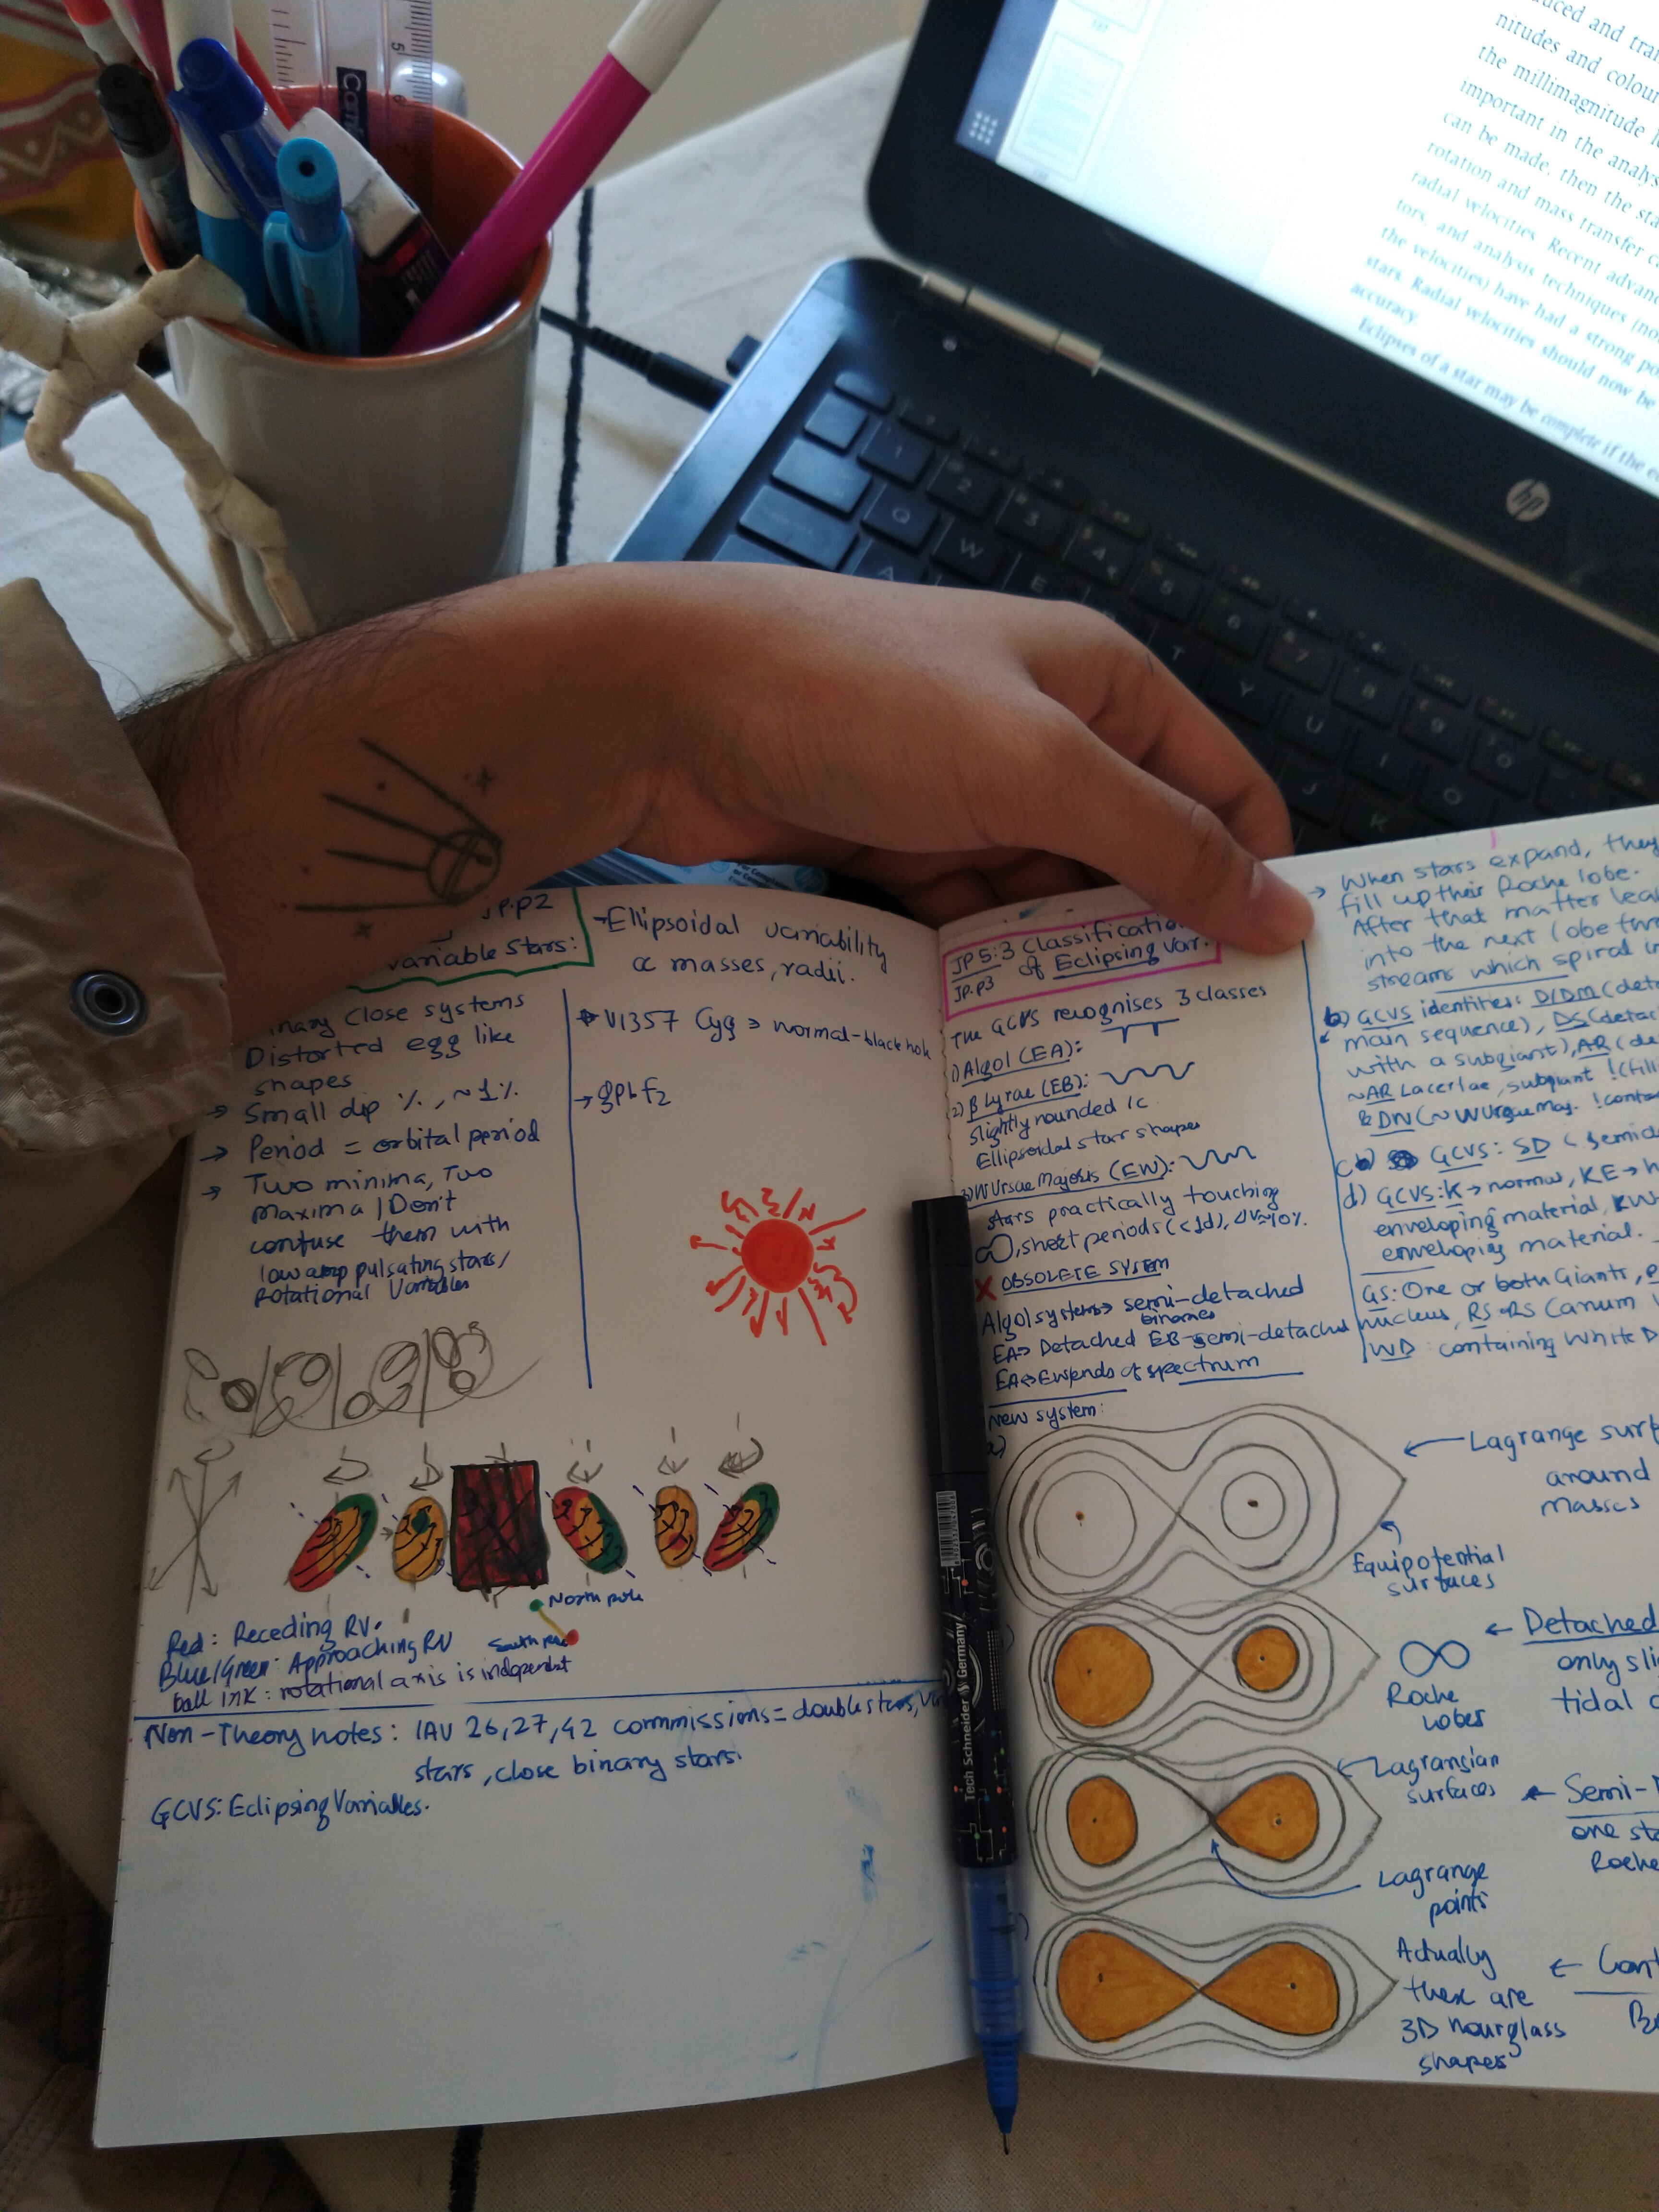 uced and tra
nitudes and colou
the millimagnitude
important in the analys
can be made, then the sta
rotation and mass transfer c
radial velocities. Recent advanc
tors, and analysis techniques (no
the velocities) have had a strong po
stars. Radial velocities should now be
accuracy.
Eclipses of a star may be complete if the e
hp
1
2
3
4
5
6
7
8
9
0
Q
W
E
T
Y
U
I
O
A
J
K
5
6
JP.P2
variable stars:
inary close systems
Distorted egg like
shapes
→ Small dip %, ~1%
→ Period = orbital period
→ Two minima, Two
maxima / Don't
confuse them with
low amp pulsating stars/
Rotational Variables
→Ellipsoidal variability
∝ masses, radii.
→ V1357 Cyg → normal-black hole
→
North pole
South pole
Red: Receding RV.
Blue/Green: Approaching RV
ball ink: rotational axis is independent
Non-Theory notes: IAU 26,27,42 commissions= double stars, V
stars, close binary stars.
GCVS: Eclipsing Variables.
JP 5:3 Classificatio
JP.P3
of Eclipsing Var.
The GCVS recognises 3 classes
1) Algol (EA):
2) β Lyrae (EB):
Slightly rounded lc
Ellipsoidal star shapes
3) W Ursae Majoris (EW):
stars practically touching
, short periods (<1d), ΔV≈10%.
X OBSOLETE SYSTEM
Algol systems→ semi-detached
binaries
EA→ Detached EB-semi-detached
EA↔EW ends of spectrum
New system:
a)
→ When stars expand, they
fill up their Roche lobe.
After that matter lea
into the next lobe thr
streams which spiral in
b) GCVS identifies: D/DM (deta
main sequence), DS (detac
with a subgiant), AR (de
~AR Lacertae, subgiant ! (fill
& DW (~W Ursae Maj. ! conta
c) GCVS: SD (semid
d) GCVS: K→ normal, KE→ h
enveloping material, KW
enveloping material.
GS: One or both Giants,
nucleus, RS→RS Canum
WD: containing White D
Lagrange surf
around
masses
Equipotential
surfaces
← Detached
only sli
tidal
Roche
Lobes
Lagrangian
surfaces
← Semi-
one sta
Roche
Lagrange
points
Actually
these are
3D hourglass
shapes
← Cont
Tech Schneider Germany